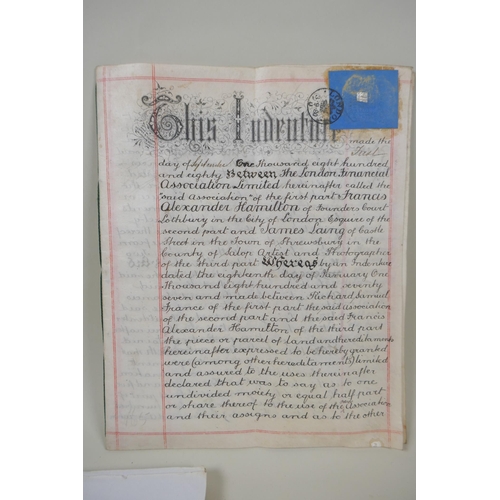 This Indenture made the First
day of September One Thousand eight hundred
and eighty Between The London Financial
Association Limited hereinafter called the
"said Association" of the first part Francis
Alexander Hamilton of Founders Court
Lothbury in the City of London Esquire of the
second part and James Laing of Castle
Street in the Town of Shrewsbury in the
County of Salop Artist and Photographer
of the third part Whereas by an Indenture
dated the eighteenth day of January One
Thousand eight hundred and seventy
seven and made between Richard Samuel
France of the first part the said Association
of the second part and the said Francis
Alexander Hamilton of the third part
the piece or parcel of land and hereditaments
hereinafter expressed to be hereby granted
were (among other hereditaments) limited
and assured to the uses thereinafter
declared that was to say as to one
undivided moiety or equal half part
or share thereof to the use of the said Association
and their assigns and as to the other